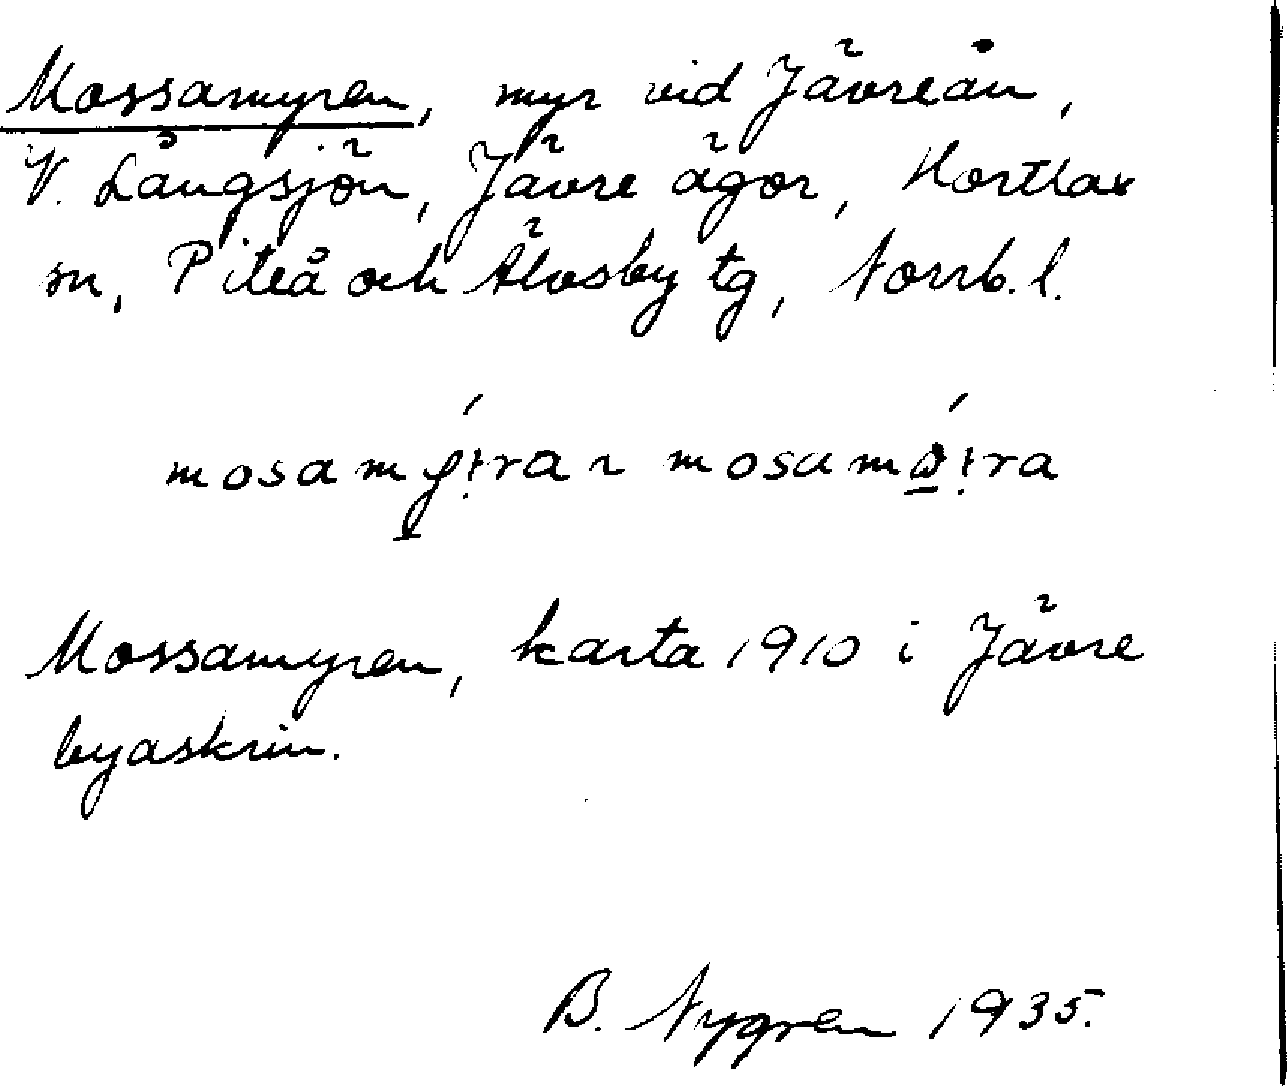 Mossamyren, myr vid Jävreån,
V. Långsjön, Jävre ägor, Hortlax
sn, Piteå och Älvsby tg, Norrb. l.
Mossamyren, karta 1910 i Jävre
byaskrin.
B. Nygren 1935.